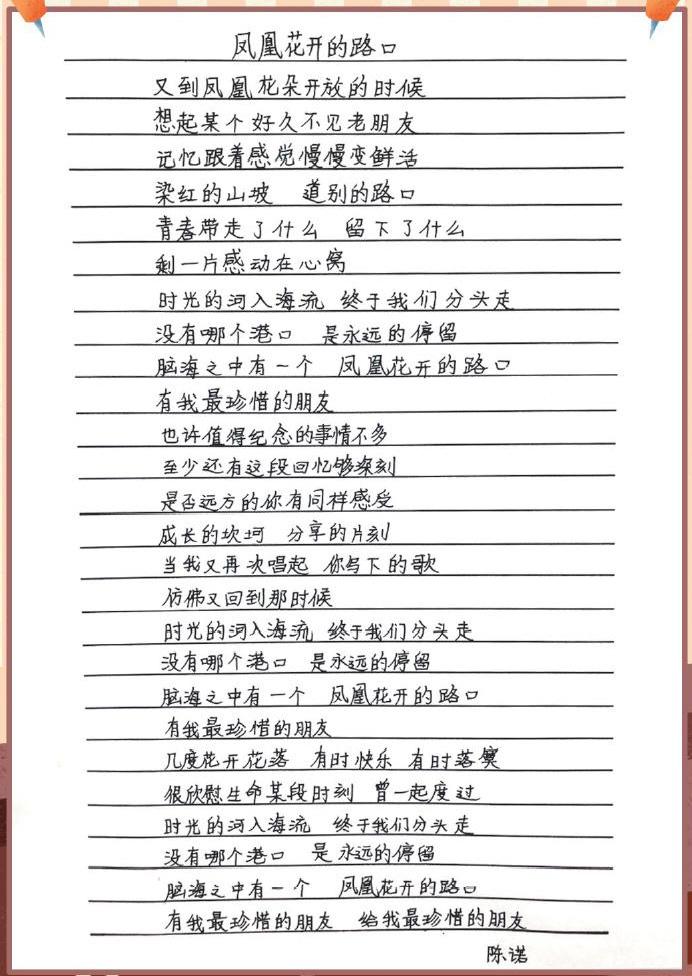 凤凰花开的路口
又到凤凰花朵开放的时候
想起某个好久不见老朋友
记忆跟着感觉慢慢变鲜活
染红的山坡 道别的路口
青春带走了什么 留下了什么
剩一片感动在心窝
时光的河入海流 终于我们分头走
没有哪个港口 是永远的停留
脑海之中有一个 凤凰花开的路口
有我最珍惜的朋友
也许值得纪念的事情不多
至少还有这段回忆够深刻
是否远方的你有同样感受
成长的坎坷 分享的片刻
当我又再次唱起 你写下的歌
仿佛又回到那时候
时光的河入海流 终于我们分头走
没有哪个港口 是永远的停留
脑海之中有一个 凤凰花开的路口
有我最珍惜的朋友
几度花开花落 有时快乐 有时落寞
很欣慰生命某段时刻 曾一起度过
时光的河入海流 终于我们分头走
没有哪个港口 是永远的停留
脑海之中有一个 凤凰花开的路口
有我最珍惜的朋友 给我最珍惜的朋友
陈诺